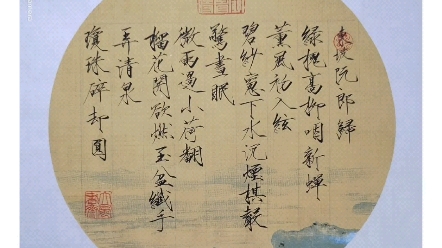 東坡阮郎歸
綠槐高柳咽新蟬
薰風初入絃
碧紗窗下水沉煙棋聲
驚晝眠
微雨過小荷翻
榴花開欲燃玉盆纖手
弄清泉
瓊珠碎却圓